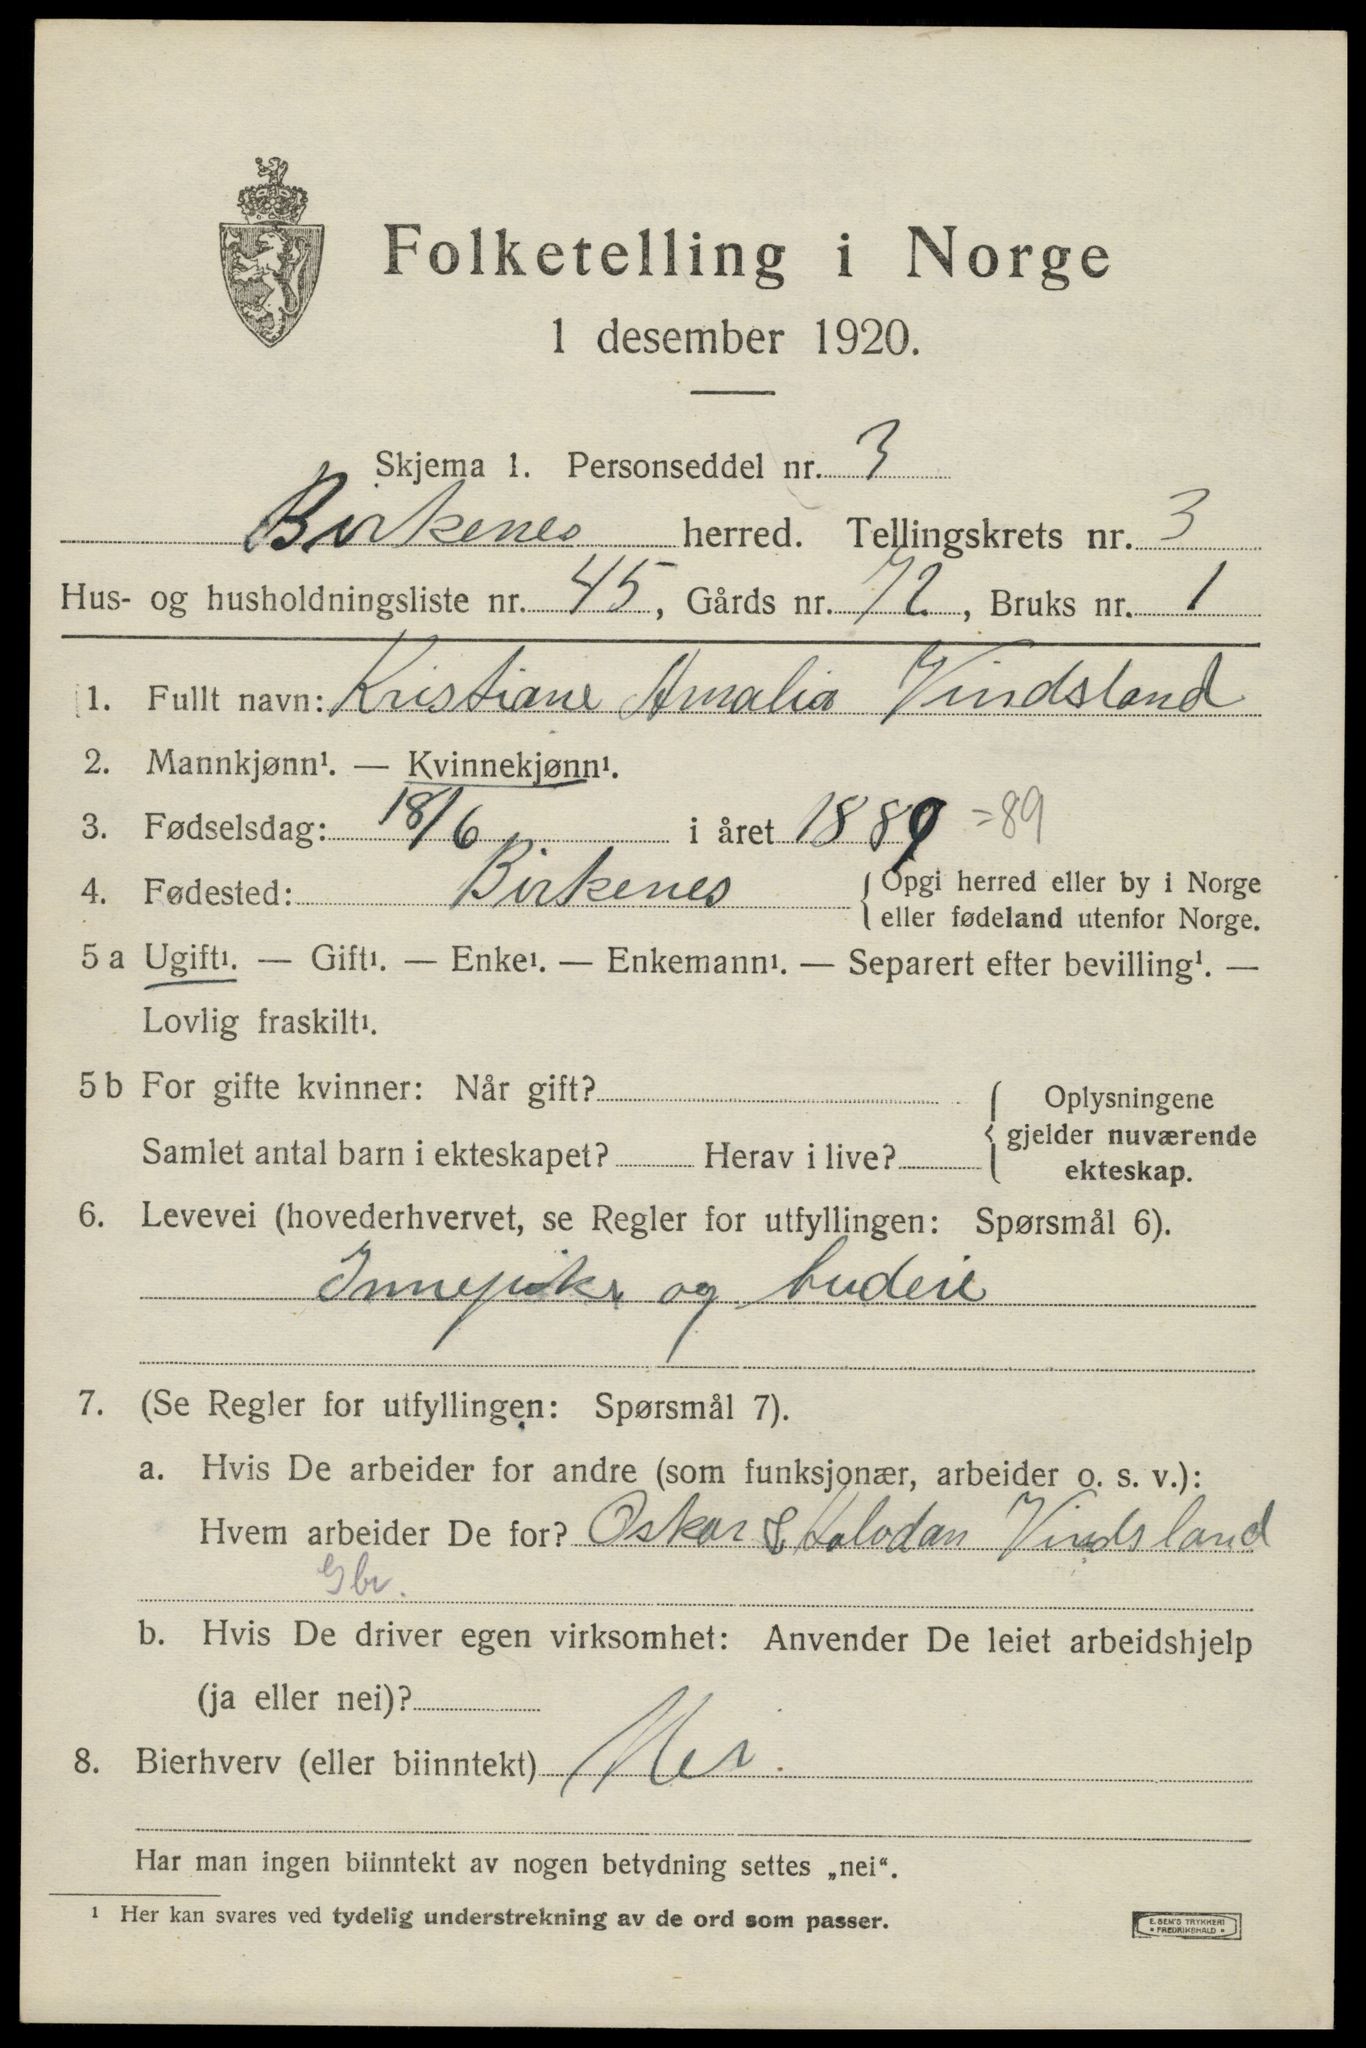 Folketelling i Norge
1 desember 1920.
Skjema 1. Personseddel nr. 3
Birkenes herred. Tellingskrets nr. 3
Hus- og husholdningsliste nr. 45, Gårds nr. 72, Bruks nr. 1
1. Fullt navn: Kristiane Amalia Vindsland
2. Mannkjønn¹. — Kvinnekjønn¹.
3. Fødselsdag: 18/6 i året 1889 =89
4. Fødested: Birkenes {Opgi herred eller by i Norge
eller fødeland utenfor Norge.
5 a Ugift¹. — Gift¹. — Enke¹. — Enkemann¹. — Separert efter bevilling¹. —
Lovlig fraskilt¹.
5 b For gifte kvinner: Når gift?
Samlet antal barn i ekteskapet? Herav i live?
{Oplysningene
gjelder nuværende
ekteskap.
6. Levevei (hovederhvervet, se Regler for utfyllingen: Spørsmål 6).
Innepike og budeie
7. (Se Regler for utfyllingen: Spørsmål 7).
a. Hvis De arbeider for andre (som funksjonær, arbeider o. s. v.):
Hvem arbeider De for? Oskar & Halvdan Vindsland
Gbr.
b. Hvis De driver egen virksomhet: Anvender De leiet arbeidshjelp
(ja eller nei)?
8. Bierhverv (eller biinntekt) Nei.
Har man ingen biinntekt av nogen betydning settes „nei“.
¹ Her kan svares ved tydelig understrekning av de ord som passer.
E. SEM'S TRYKKERI
* FREDRIKSHALD *